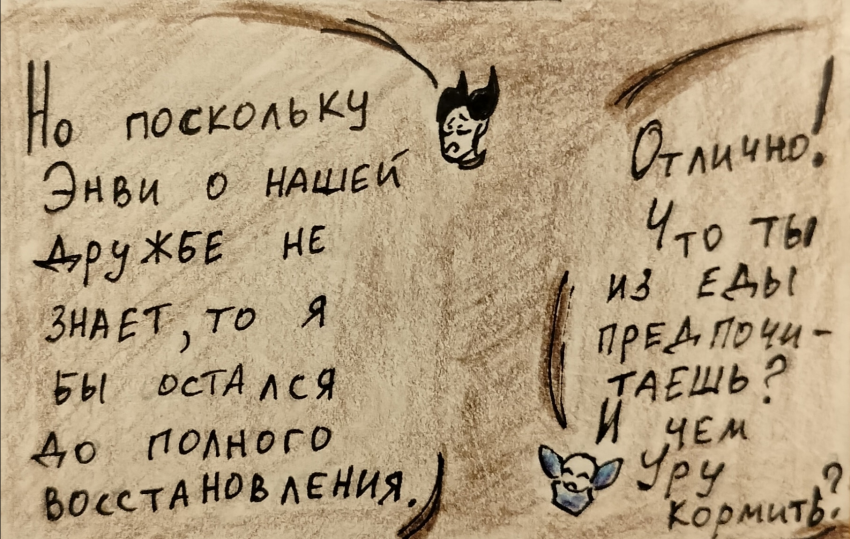 Но поскольку
Энви о нашей
дружбе не
знает, то я
бы остался
до полного
восстановления.
Отлично!
Что ты
из еды
предпочи-
таешь?
И чем
Уру
кормить?